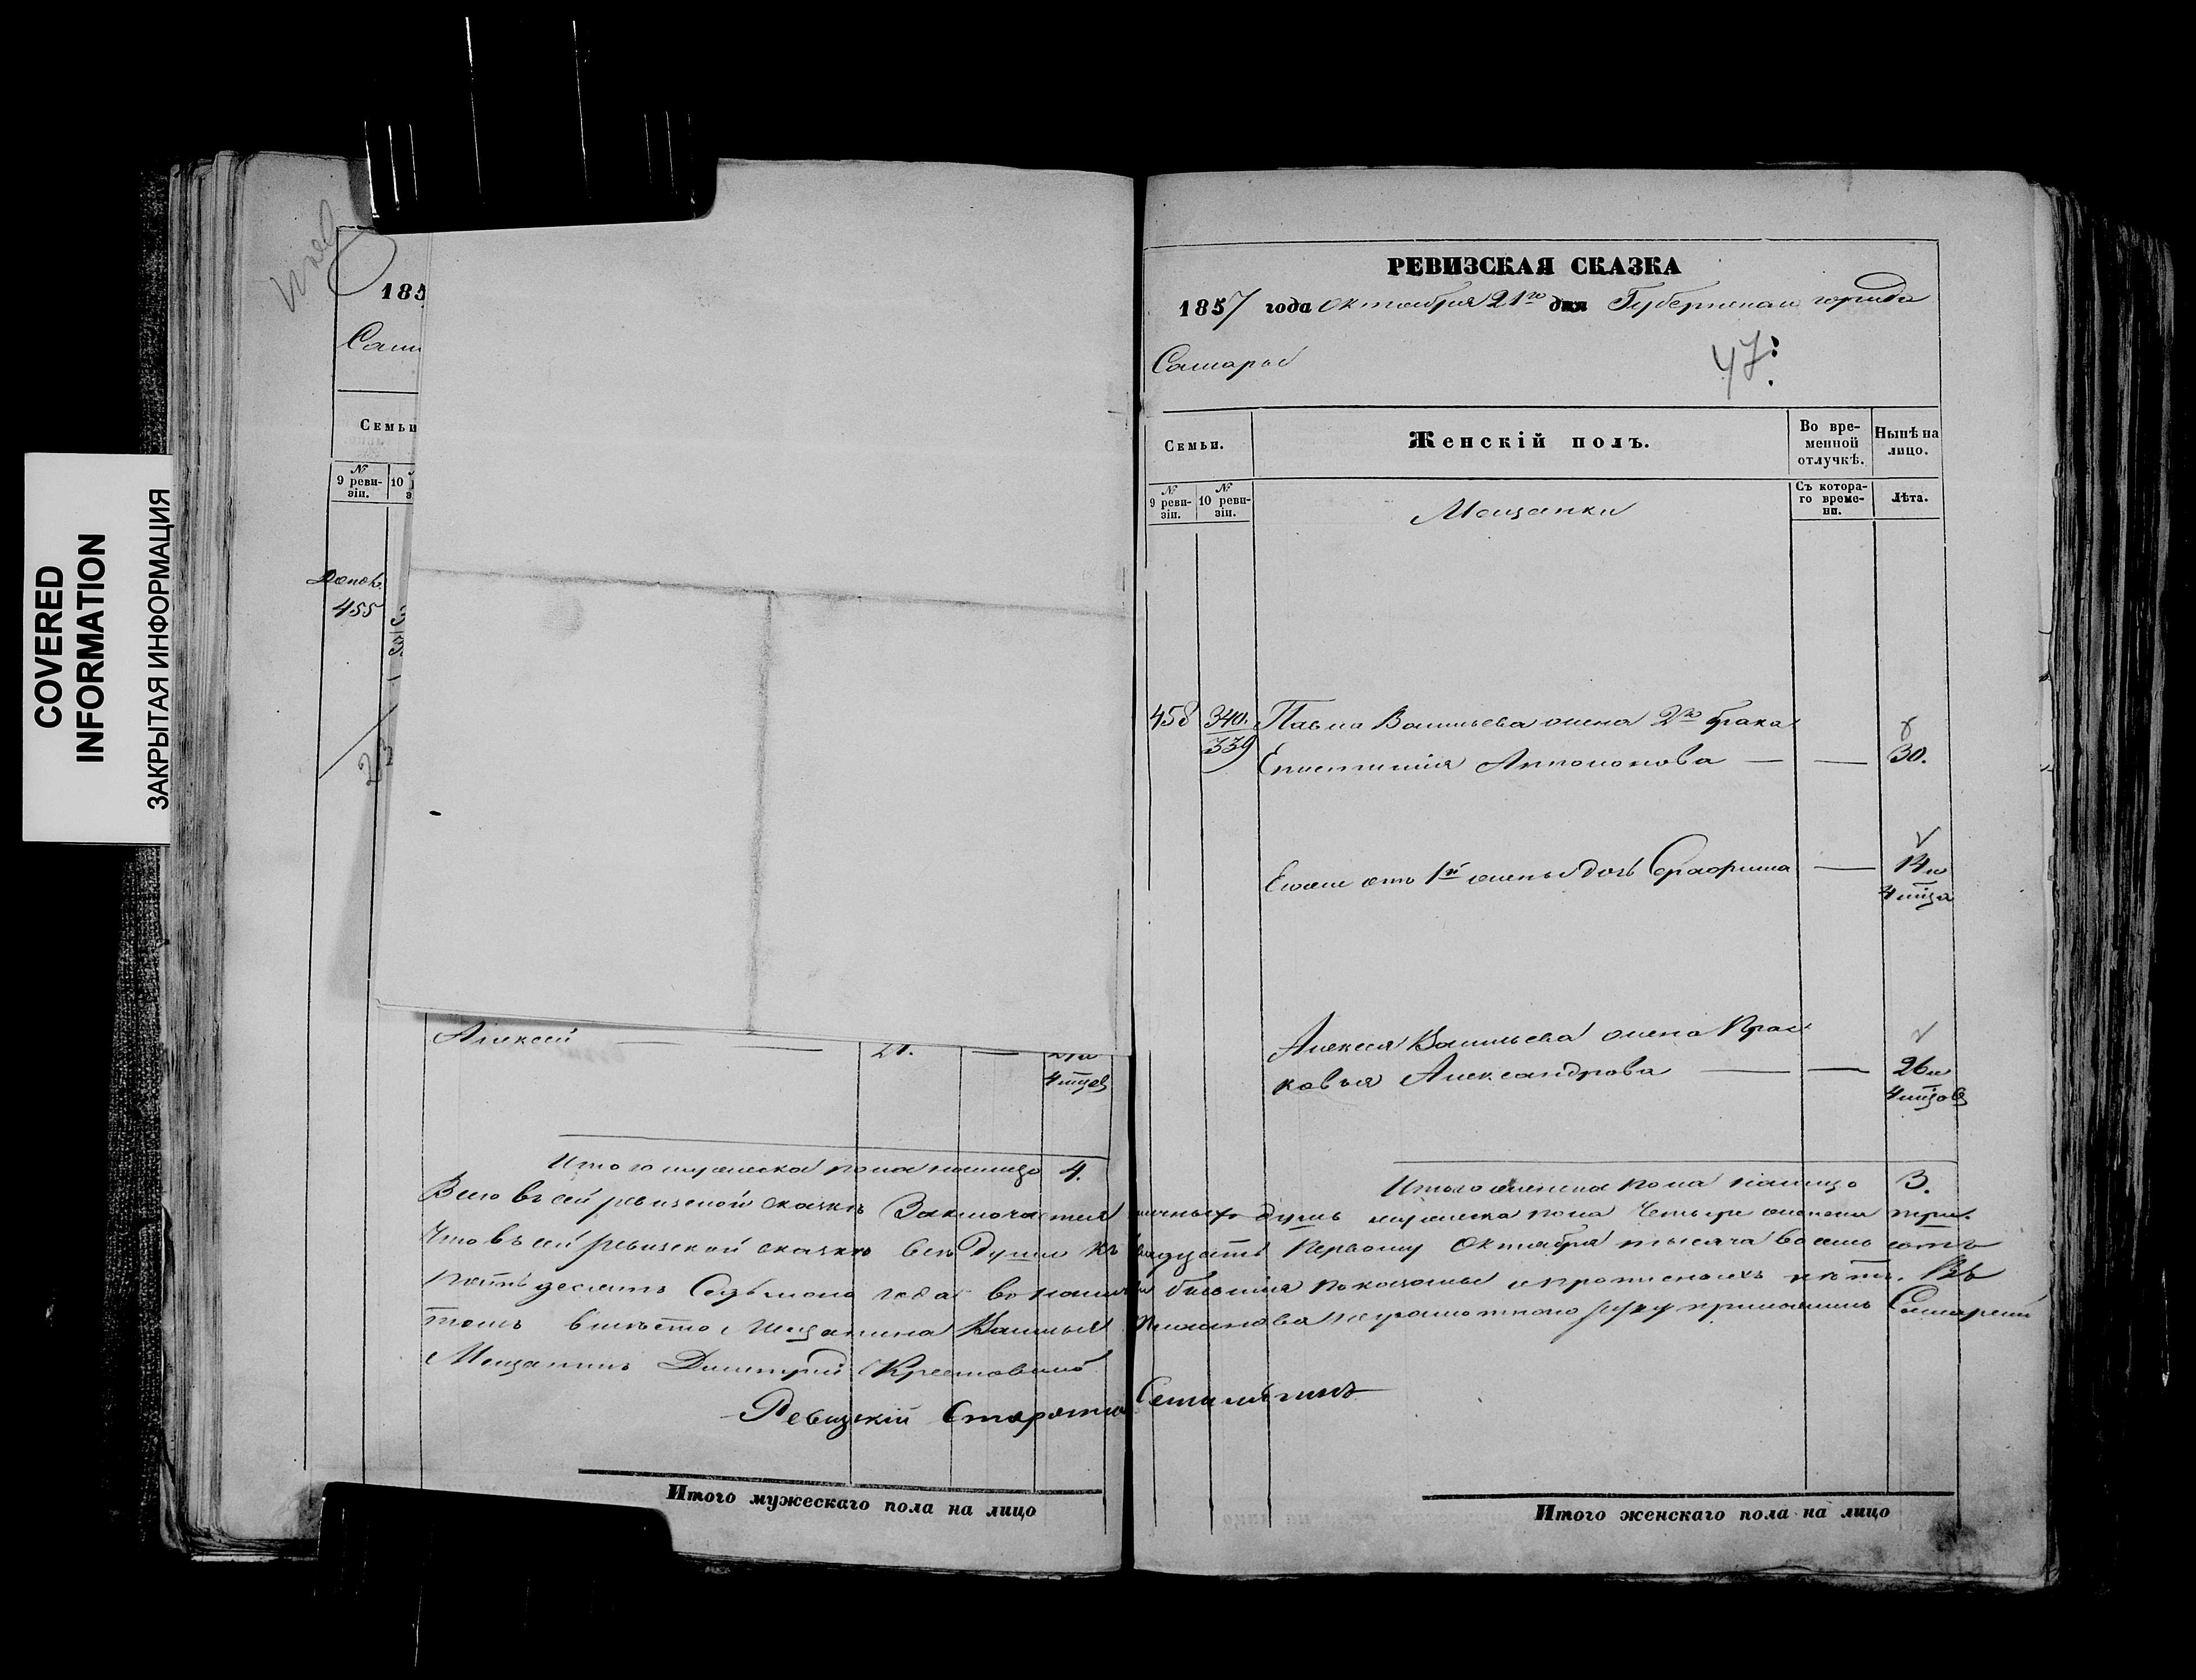 COVERED
INFORMATION
ЗАКРЫТАЯ ИНФОРМАЦИЯ
185
Сам
Семьи
№
9 реви-
зіи.
10
Допол.
455
Алексей — 21. —
4 мцов
Итого мужеска пола налицо 4.
РЕВИЗСКАЯ СКАЗКА
1857 года Октября 21го дня Губернскаго города
Самары
47
Семьи.
Женскій полъ.
Во вре-
менной
отлучкѣ.
Нынѣ на
лицо.
№
9 реви-
зіи.
№
10 реви-
зіи.
Съ котора-
го време-
ни.
Лѣта.
Мещанки
458 340. Павла Васильева жена 2го брака
339 Епистимия Антонова — — 30.
Егоже отъ 1й жены дочь Серафима — 14 и
4 мца
Алексея Васильева жена Прас
ковья Александрова — — 26 и
4 мцов
Итого женска пола налицо 3.
Всего въ сей ревизской сказкѣ Заключается личныхъ душъ мужеска пола Четыре женска три.
Что въ сей ревизской сказкѣ все Души къ двадцать Первому Октября тысяча восемь сотъ
Пятьдесятъ Седьмого года в наличи бывшия показаны и прописныхъ нѣтъ. Въ
томъ вместо Мещанина Василья неграмотнаго руку приложилъ Самарский
Мещанинъ Дмитрий
Ревизкій Староста
Итого мужескаго пола на лицо
Итого женскаго пола на лицо